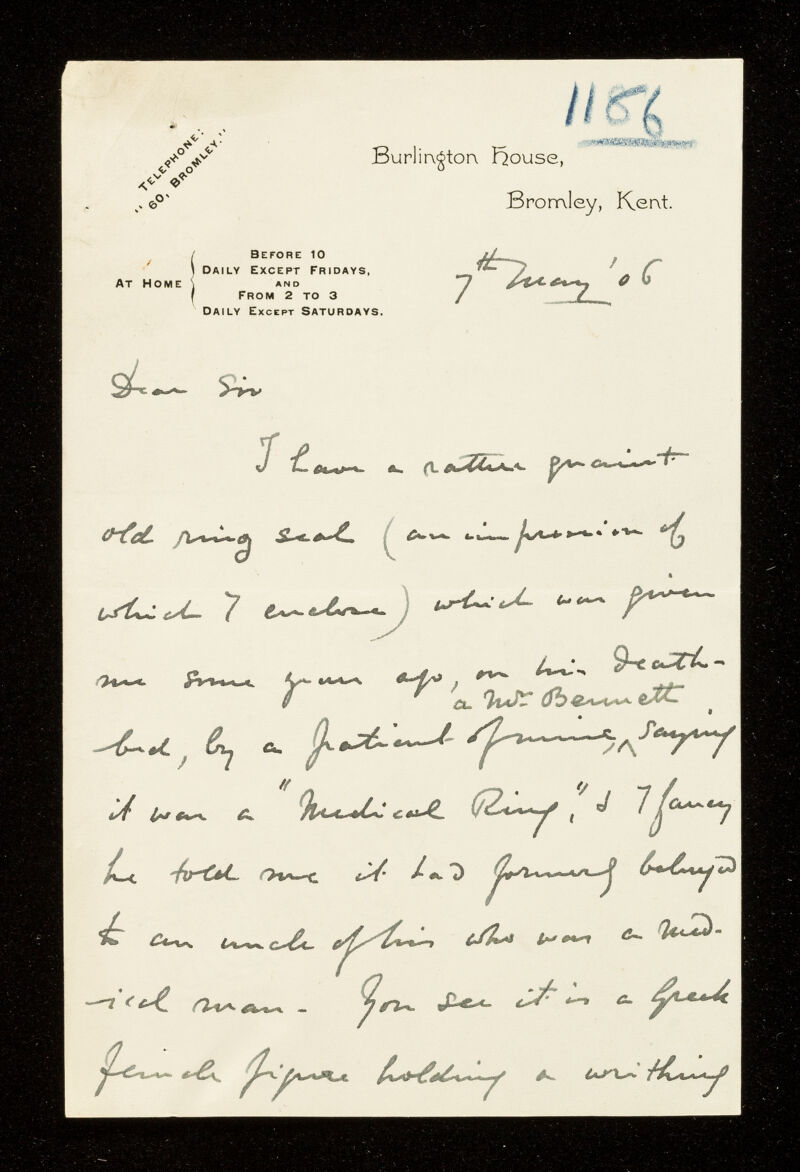 1186
TELEPHONE:
"60, BROMLEY."
Burlington House,
Bromley, Kent.
AT HOME
BEFORE 10
DAILY EXCEPT FRIDAYS,
AND
FROM 2 TO 3
DAILY EXCEPT SATURDAYS.
7th May '06
Dear Sir
I have a rather quaint
old ring seal (an impression of
which I enclose) which was given
me some years ago, on his death-
a Mr Bennett
bed, by a patient of mine, ^ saying
it was a "Medical Ring", & I fancy
he told me it had formerly belonged
to an uncle of his who was a med-
-ical man - You see it is a Greek
female figure holding a writhing